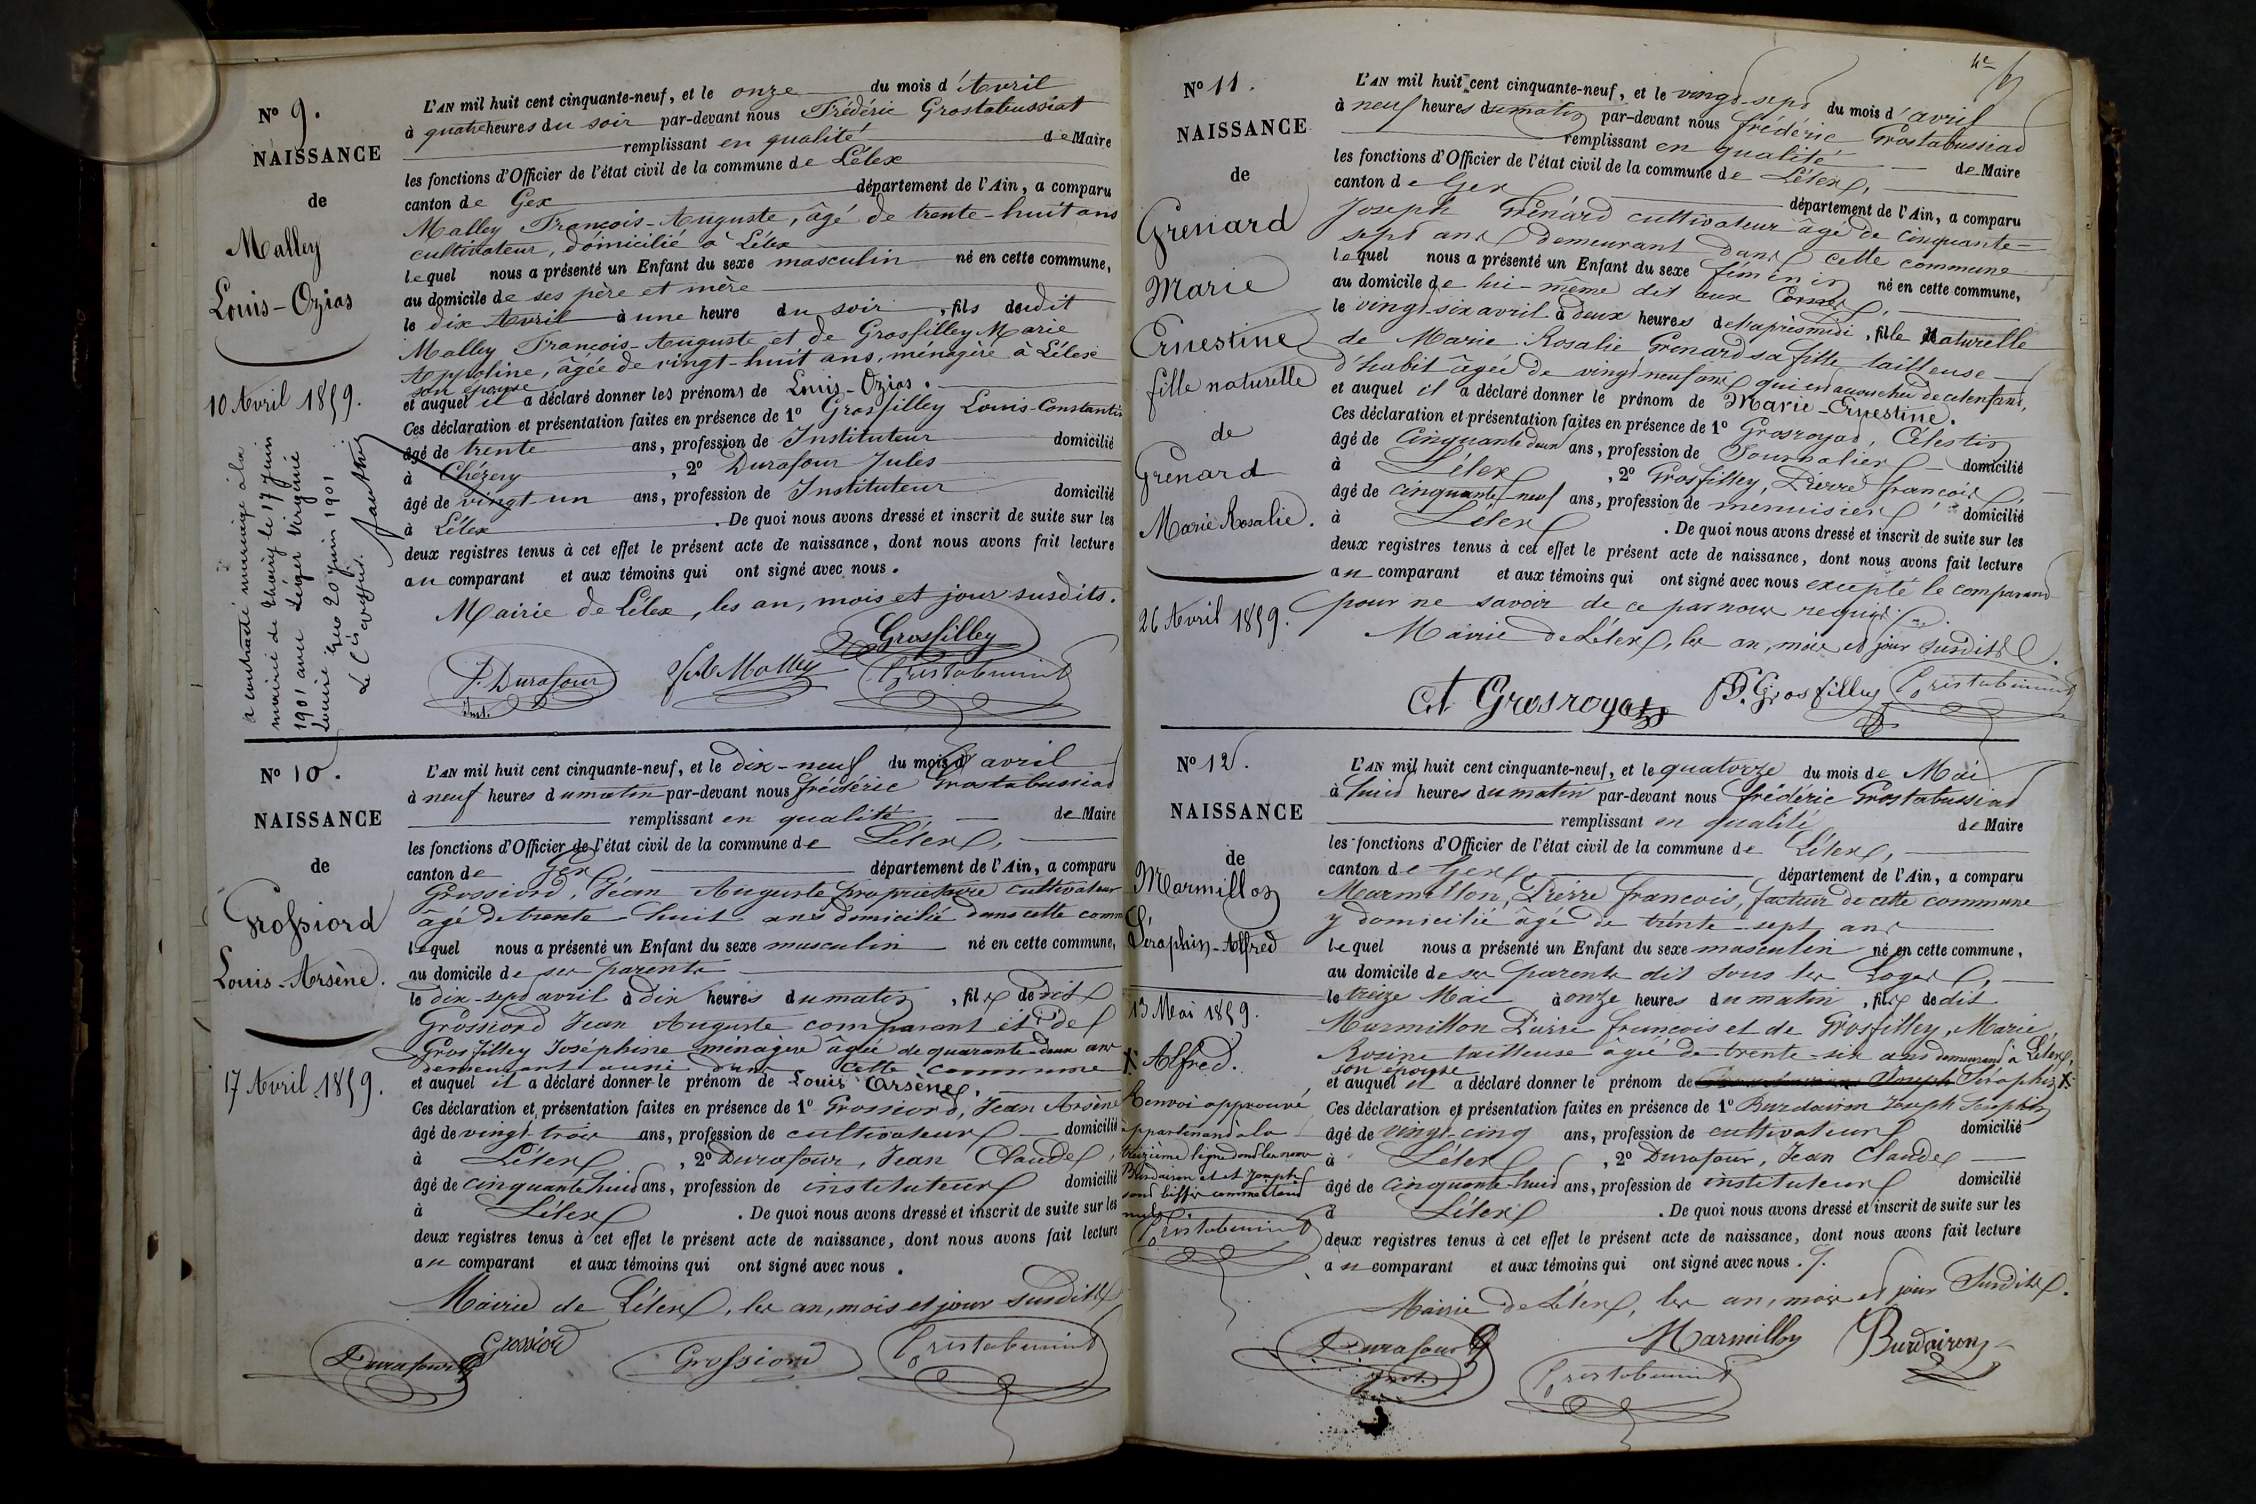 N° 9.
NAISSANCE
de
Malley
Louis-Ozias
10 Avril 1859.
a contracté mariage à la
mairie de Thoiry le 17 Juin
1901 avec Léger Virginie
Louise
20 juin 1901
Le
L'AN mil huit cent cinquante-neuf, et le onze du mois d'Avril
à quatre heures du soir par-devant nous Frédéric Grostabussiat
remplissant en qualité de Maire
les fonctions d'Officier de l'état civil de la commune de Lélex
canton de Gex département de l'Ain, a comparu
Malley François-Auguste, âgé de trente-huit ans
cultivateur, domicilié à Lélex
lequel nous a présenté un Enfant du sexe masculin né en cette commune,
au domicile de ses père et mère
le dix Avril à une heure du soir, fils dudit
Malley François-Auguste et de Grosfilley Marie
Appoline, âgée de vingt-huit ans, ménagère à Lélex
son épouse
et auquel il a déclaré donner les prénoms de Louis-Ozias.
Ces déclaration et présentation faites en présence de 1° Grosfilley Louis-Constantin
âgé de trente ans, profession de Instituteur domicilié
à Chézery, 2° Durafour Jules
âgé de vingt-un ans, profession de Instituteur domicilié
à Lélex. De quoi nous avons dressé et inscrit de suite sur les
deux registres tenus à cet effet le présent acte de naissance, dont nous avons fait lecture
au comparant et aux témoins qui ont signé avec nous.
Mairie de Lélex, les an, mois et jour susdits.
Grosfilley
J. Durafour
Inst.
Malley
Grostabussiat
N° 10.
NAISSANCE
de
Grossiord
Louis-Arsène.
17 Avril 1859.
L'AN mil huit cent cinquante-neuf, et le dix-neuf du mois d'avril
à neuf heures du matin par-devant nous frédéric Grostabussiat
remplissant en qualité de Maire
les fonctions d'Officier de l'état civil de la commune de Lélex,
canton de Gex département de l'Ain, a comparu
Grossiord, Jéan Auguste propriétaire cultivateur
âgé de trente huit ans domicilié dans cette comm
lequel nous a présenté un Enfant du sexe masculin né en cette commune,
au domicile de ses parents
le dix-sept avril à dix heures du matin, fils dedit
Grossiord Jean Auguste comparant et de
Grosfilley Joséphine ménagère âgée de quarante-deux ans
demeurant aussi dans cette commune
et auquel il a déclaré donner le prénom de Louis Arsène.
Ces déclaration et présentation faites en présence de 1° Grossiord, Jean Arsène
âgé de vingt-trois ans, profession de cultivateur domicilié
à Lélex, 2° Durafour, Jean Claude
âgé de cinquante huit ans, profession de instituteur domicilié
à Lélex. De quoi nous avons dressé et inscrit de suite sur les
deux registres tenus à cet effet le présent acte de naissance, dont nous avons fait lecture
au comparant et aux témoins qui ont signé avec nous.
Mairie de Lélex, les an, mois et jour susdits
Durafour
Grossiord
Grossiord
Grostabussiat
N° 11.
NAISSANCE
de
Grenard
Marie
Ernestine
fille naturelle
de
Grenard
Marie Rosalie.
26 Avril 1859.
L'AN mil huit cent cinquante-neuf, et le vingt-sept du mois d'avril
à neuf heures du matin par-devant nous frédéric Grostabussiat
remplissant en qualité de Maire
les fonctions d'Officier de l'état civil de la commune de Lélex,
canton de Gex département de l'Ain, a comparu
Joseph Grénard cultivateur âgé de cinquante-
sept ans demeurant dans cette commune
lequel nous a présenté un Enfant du sexe féminin né en cette commune,
au domicile de lui-même dit aux
le vingt-six avril à deux heures de l'après midi, fille naturelle
de Marie Rosalie Grenard sa fille tailleuse
d'habit âgée de vingt neuf ans qui est accouchée de cet enfant,
et auquel il a déclaré donner le prénom de Marie-Ernestine.
Ces déclaration et présentation faites en présence de 1° Grosroyat, Célestin
âgé de Cinquante deux ans, profession de Journalier domicilié
à Lélex, 2° Grosfilley, Pierre françois
âgé de cinquante neuf ans, profession de menuisier domicilié
à Lélex. De quoi nous avons dressé et inscrit de suite sur les
deux registres tenus à cet effet le présent acte de naissance, dont nous avons fait lecture
au comparant et aux témoins qui ont signé avec nous excepté le comparant
pour ne savoir de ce par nous requis.
Mairie de Lélex, les an, mois et jour susdits.
Ct Grosroyat
P. Grosfilley
Grostabussiat
N° 12.
NAISSANCE
de
Marmillon
Séraphin-Alfred
13 Mai 1859.
X Alfred.
Renvoi approuvé
appartenant à la
treizième ligne dont les noms
Burdairon et et Joseph
sont biffés comme étant
nuls.
Grostabussiat
L'AN mil huit cent cinquante-neuf, et le quatorze du mois de Mai
à huit heures du matin par-devant nous frédéric Grostabussiat
remplissant en qualité de Maire
les fonctions d'Officier de l'état civil de la commune de Lélex,
canton de Gex département de l'Ain, a comparu
Marmillon, Pierre françois, facteur de cette commune
y domicilié âgé de trente-sept ans
lequel nous a présenté un Enfant du sexe masculin né en cette commune,
au domicile de ses parents dit sous les Loges,
le treize Mai à onze heures du matin, fils dedit
Marmillon Pierre françois et de Grosfilley, Marie
Rosine tailleuse âgée de trente-six ans demeurant à Lélex,
son épouse
et auquel il a déclaré donner le prénom de Joseph Séraphin X
Ces déclaration et présentation faites en présence de 1° Burdairon Joseph Séraphin
âgé de vingt-cinq ans, profession de cultivateur domicilié
à Lélex, 2° Durafour, Jean Claude
âgé de cinquante-huit ans, profession de instituteur domicilié
à Lélex. De quoi nous avons dressé et inscrit de suite sur les
deux registres tenus à cet effet le présent acte de naissance, dont nous avons fait lecture
au comparant et aux témoins qui ont signé avec nous.
Mairie de Lélex, les an, mois et jour susdits.
Durafour
Inst.
Marmillon
Burdairon
Grostabussiat